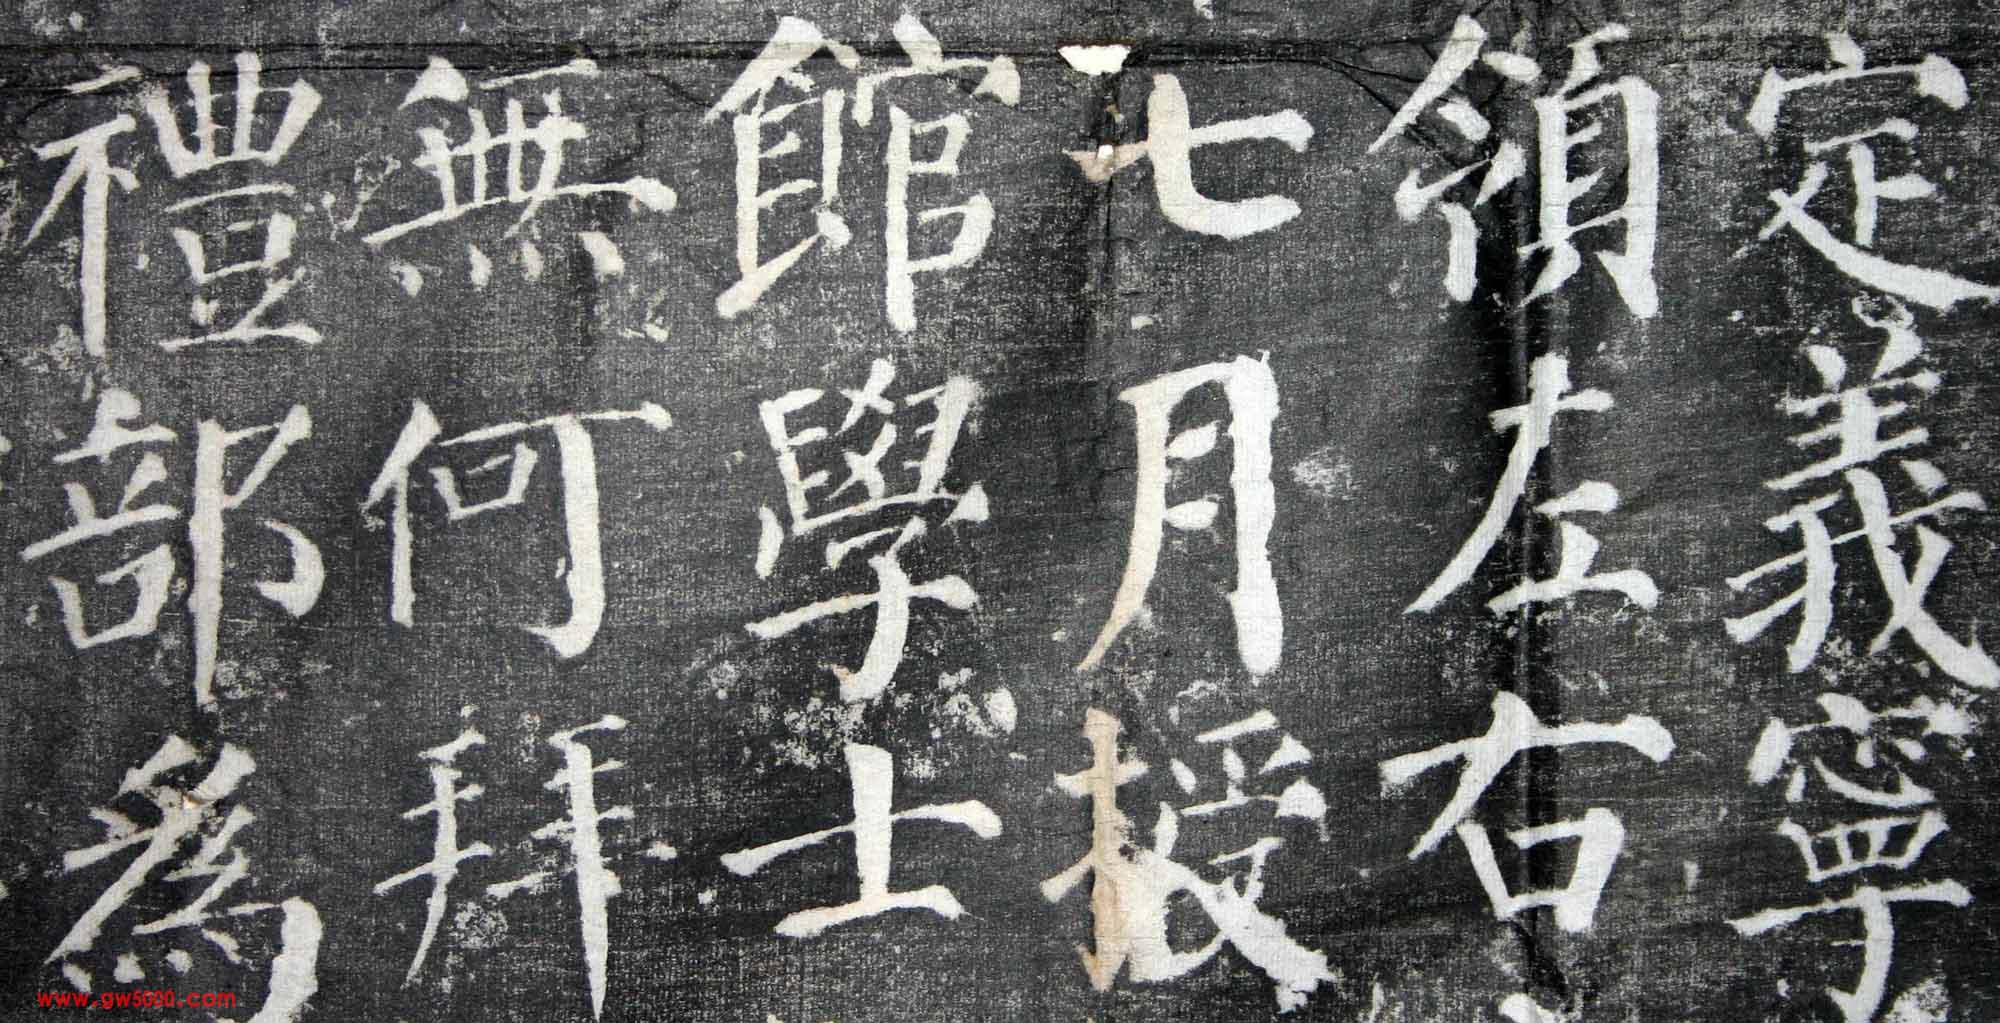 定義寧
領左右
七月授
館學士
無何拜
禮部為
www.gw5000.com